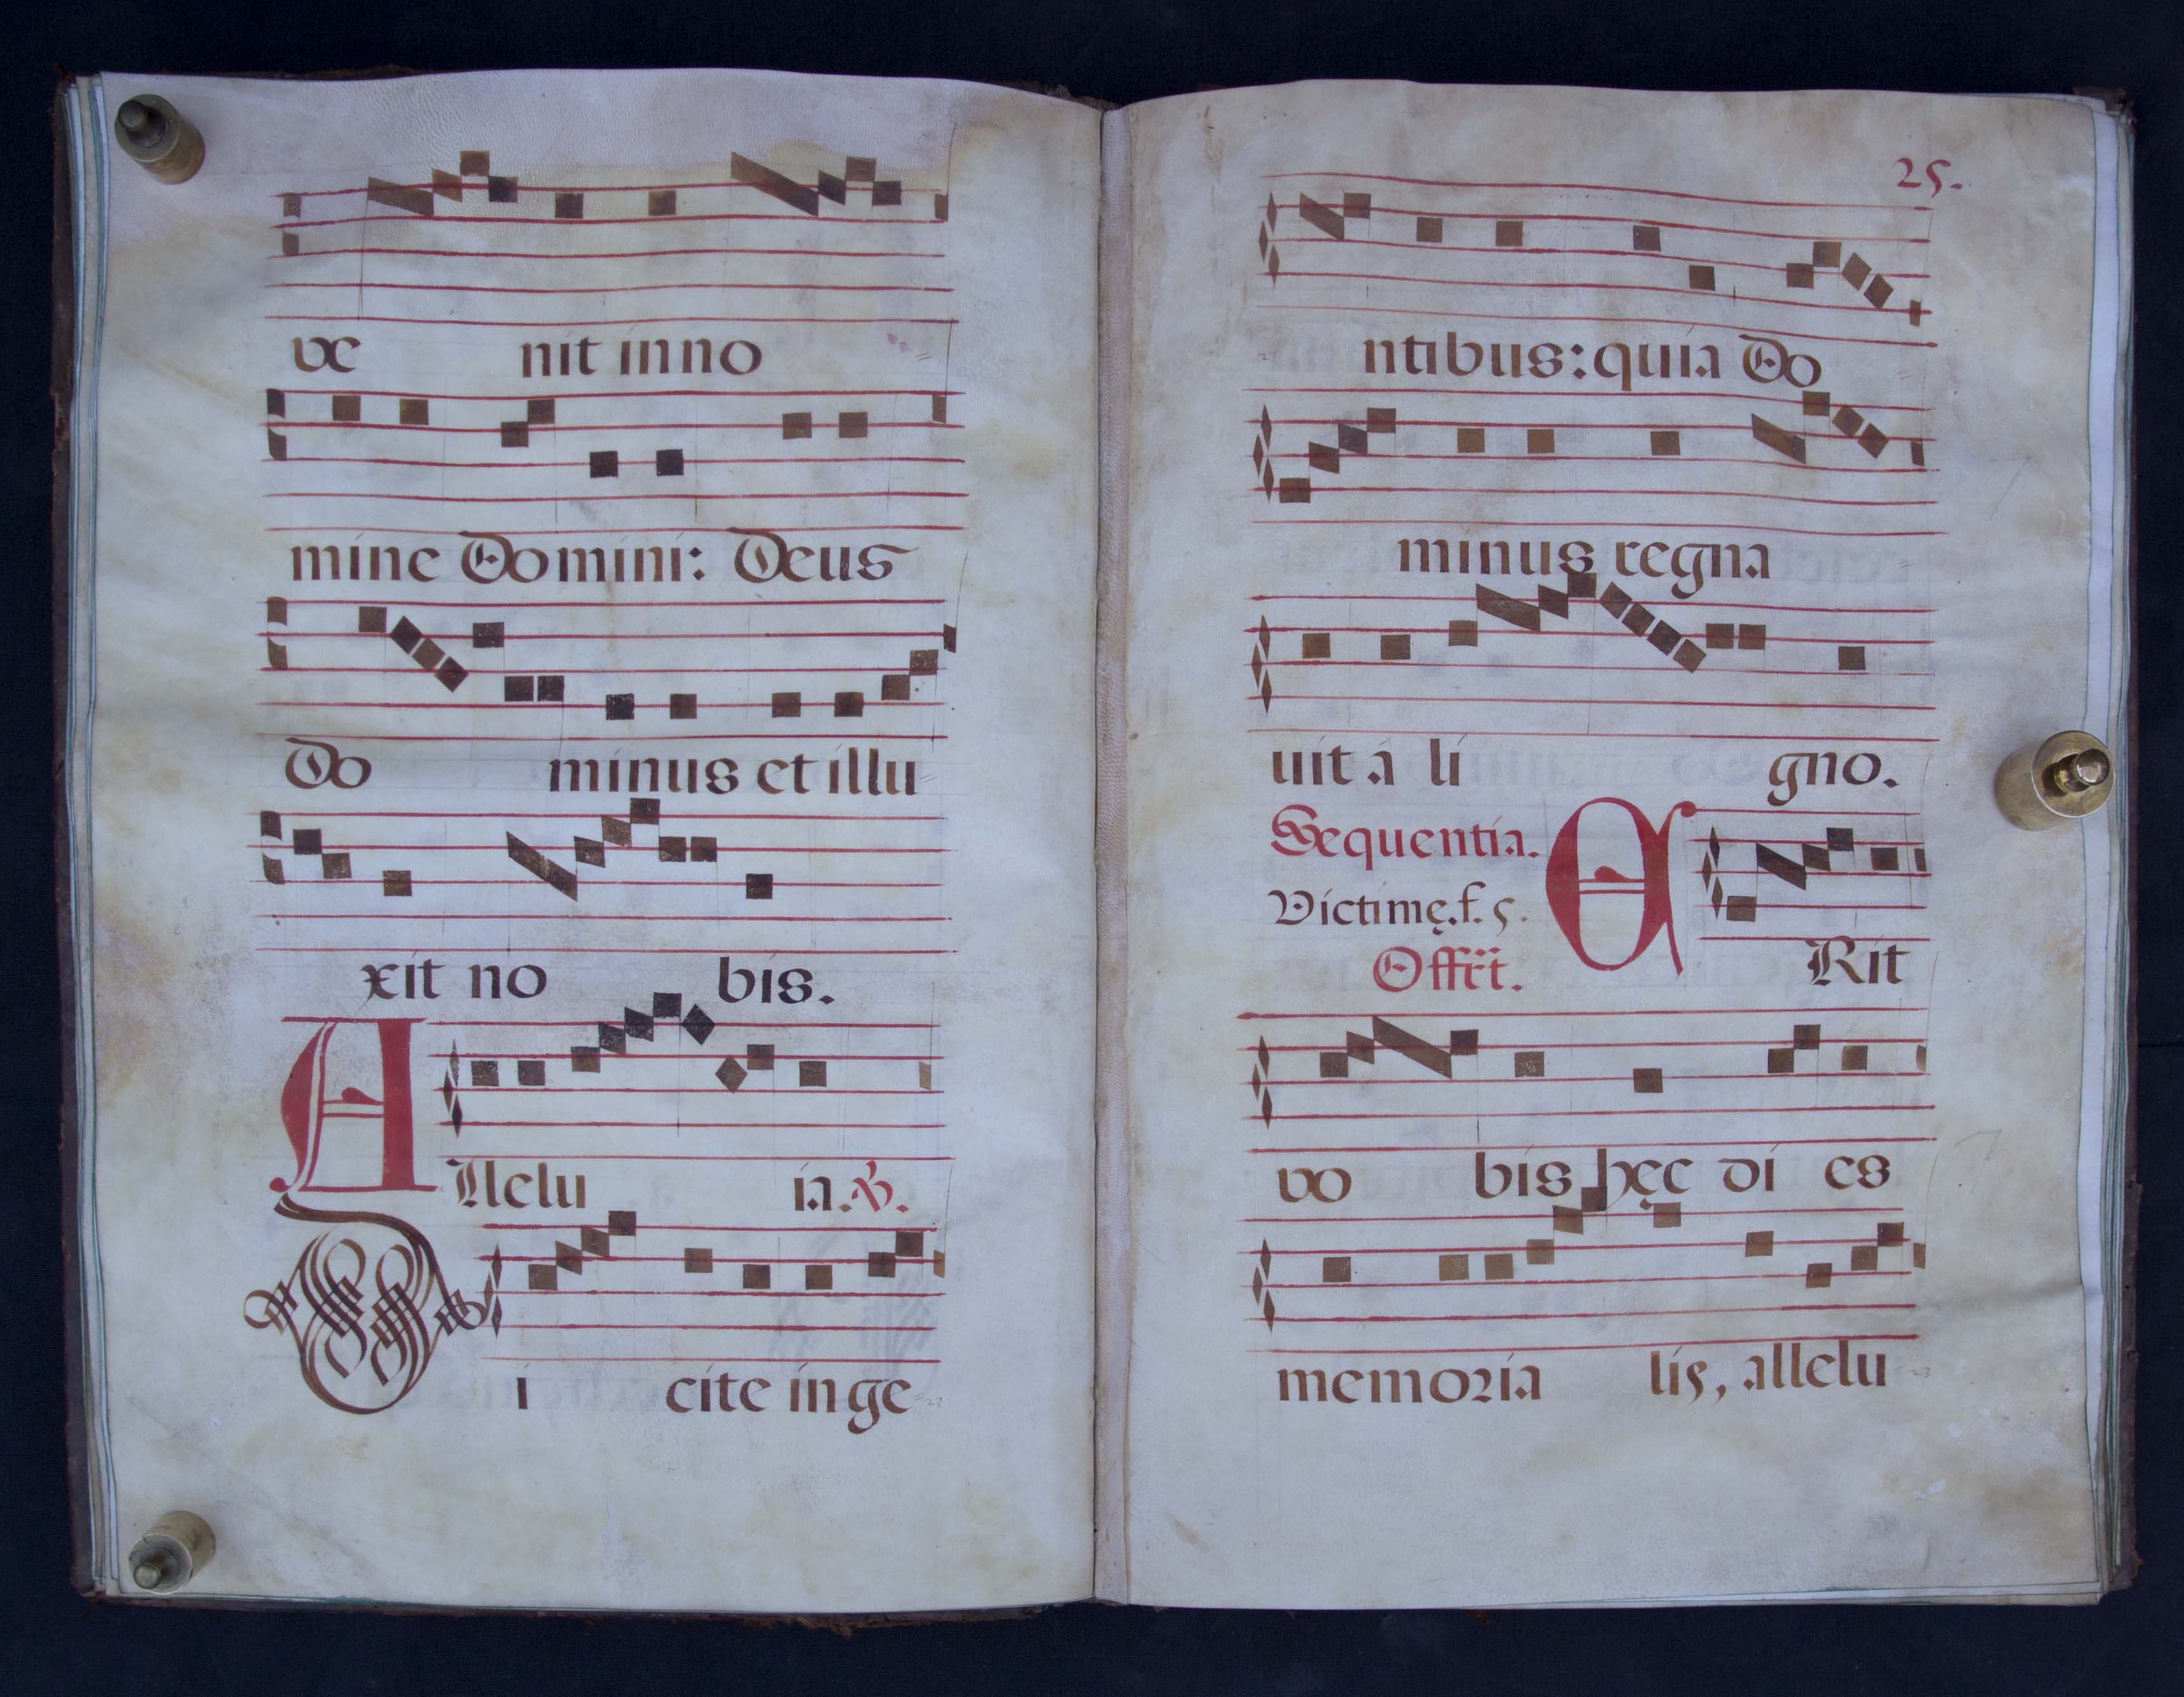 ve nit in no
mine Domini: Deus
Do minus et illu
xit no bis.
Allelu ia. ℣.
Di cite in ge
25.
ntibus: quia Do
minus regna
uit á li gno.
Sequentia.
Victimę. f. 5.
Offrt.
ERit
vo bis hęc di es
memoria lis, allelu